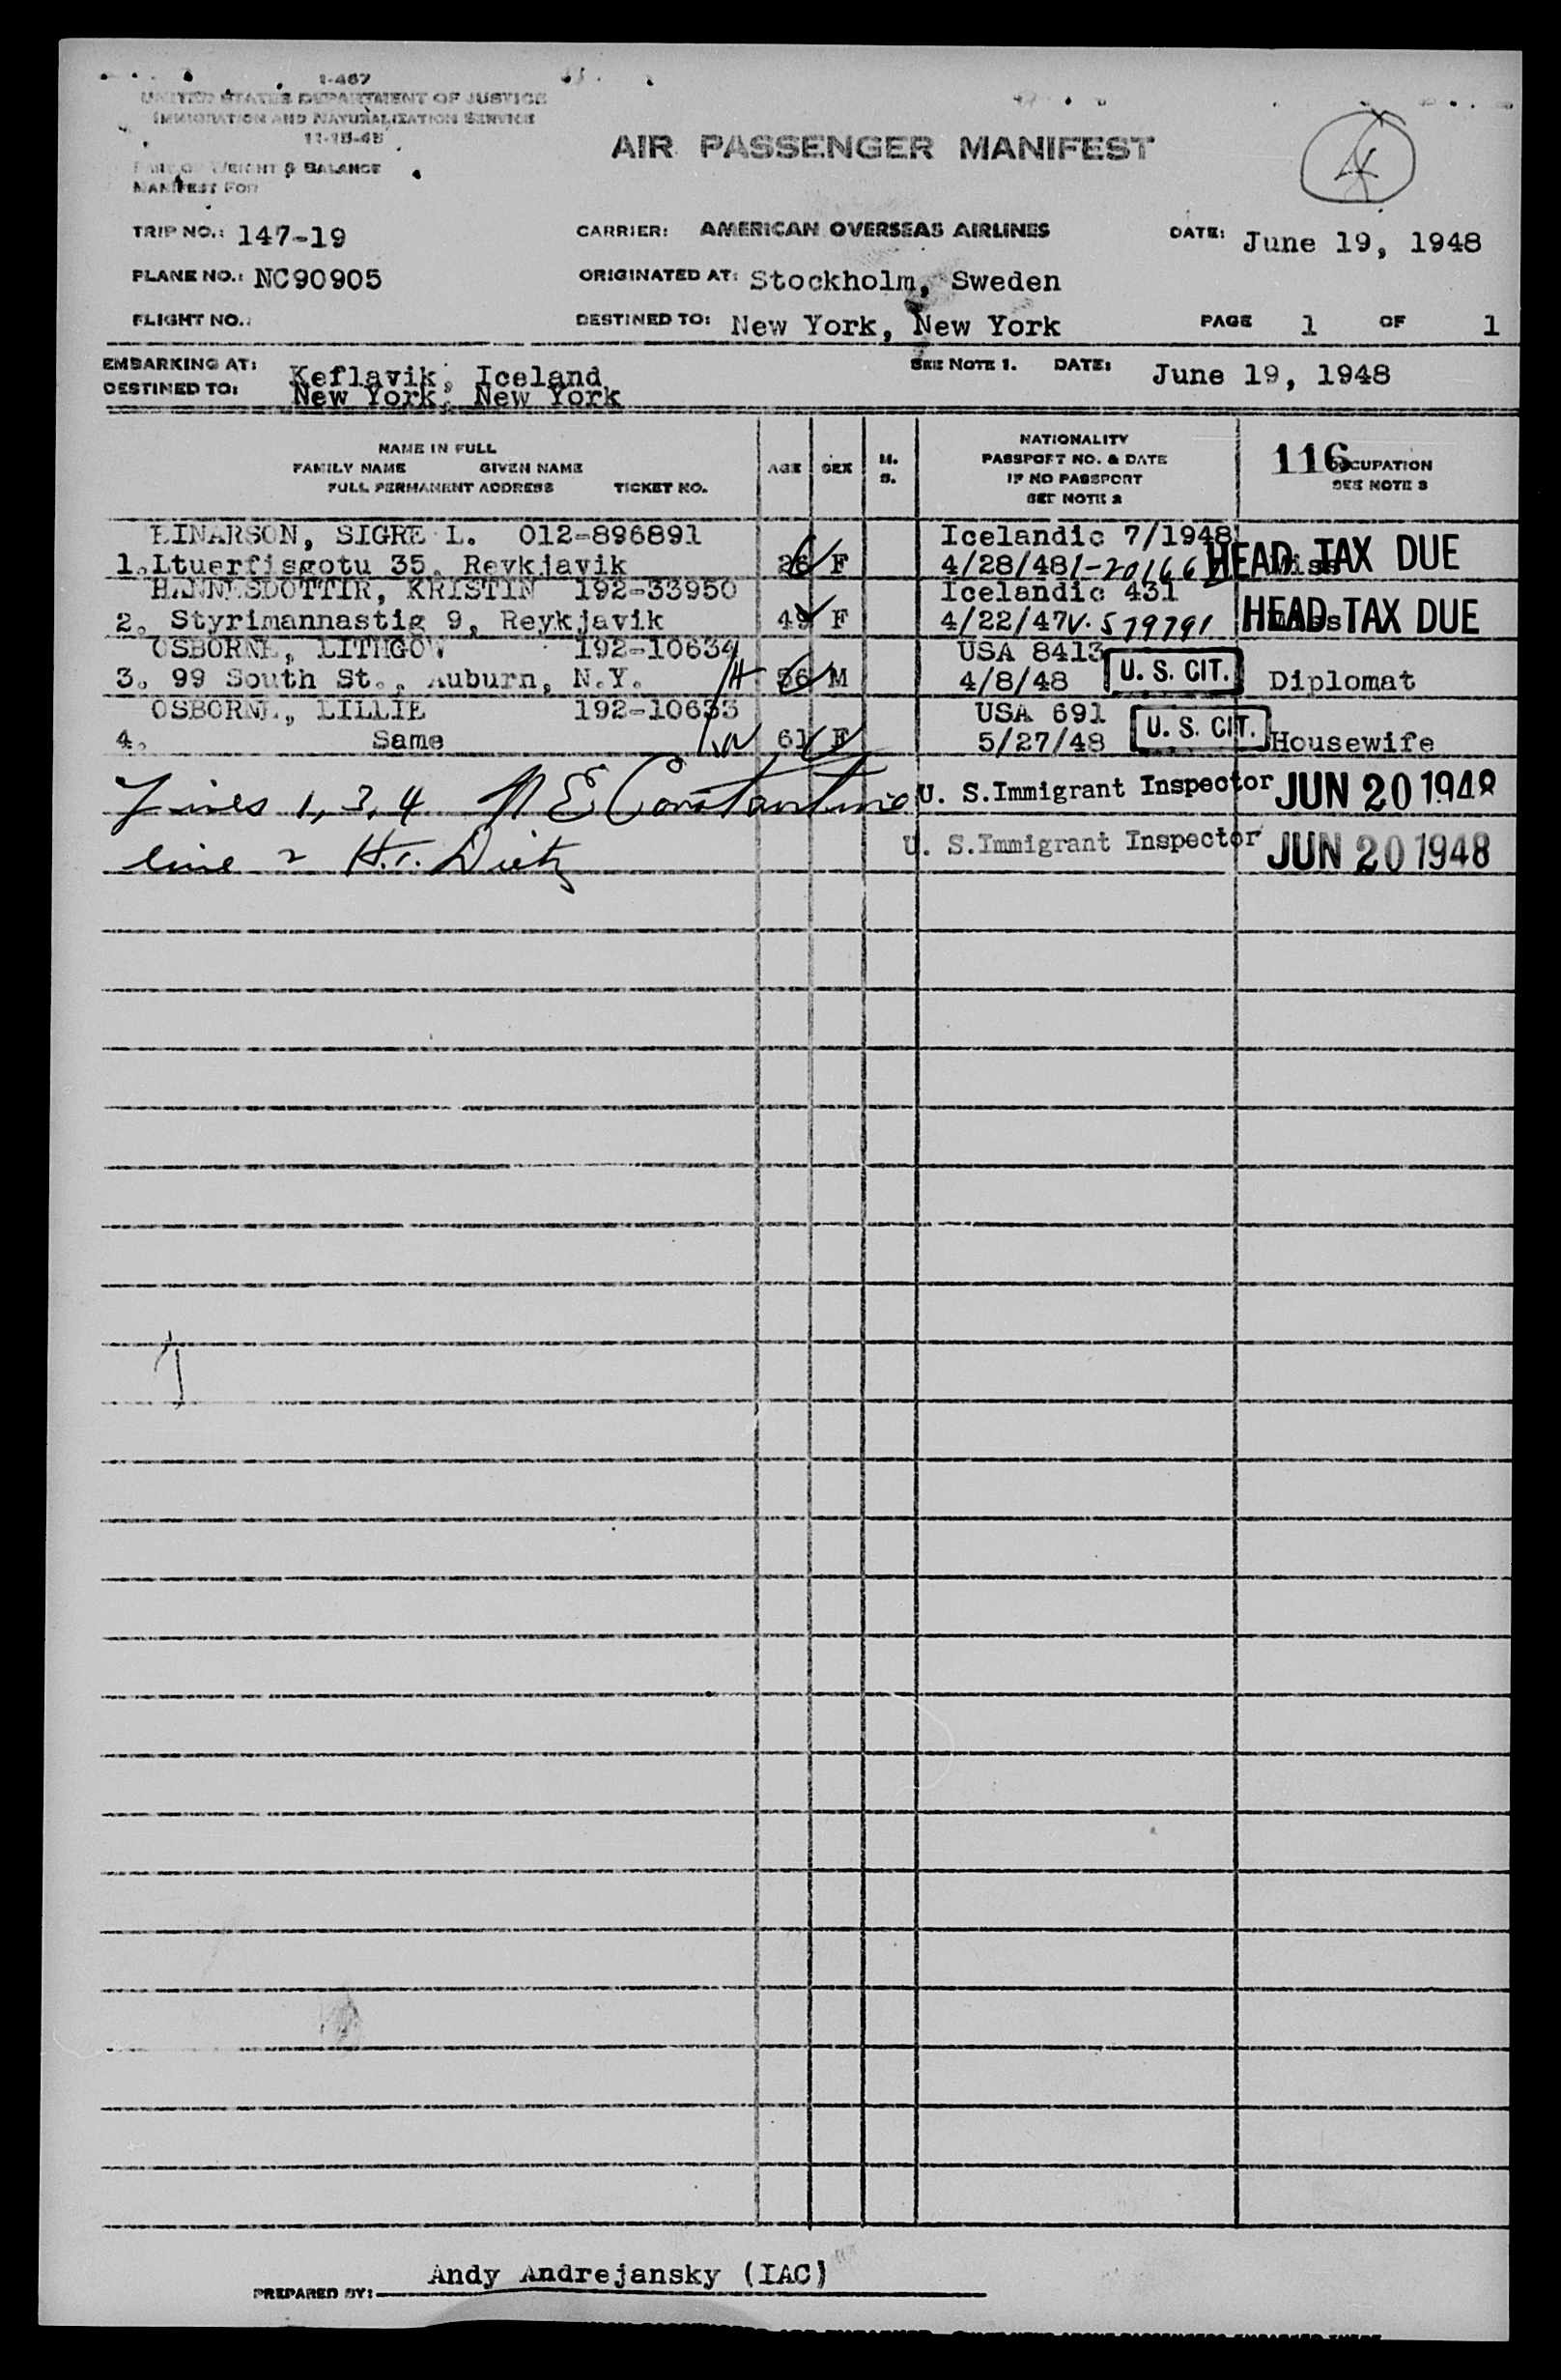 1-467
UNITED STATES DEPARTMENT OF JUSTICE
IMMIGRATION AND NATURALIZATION SERVICE
11-15-45
WEIGHT & BALANCE
MANIFEST FOR
AIR PASSENGER MANIFEST
4
TRIP NO.: 147-19
CARRIER: AMERICAN OVERSEAS AIRLINES
DATE: June 19, 1948
PLANE NO.: NC90905
ORIGINATED AT: Stockholm, Sweden
FLIGHT NO.:
DESTINED TO: New York, New York
PAGE 1 OF 1
EMBARKING AT: Keflavik, Iceland
SEE NOTE 1. DATE: June 19, 1948
DESTINED TO: New York, New York
NAME IN FULL
FAMILY NAME GIVEN NAME
FULL PERMANENT ADDRESS TICKET NO.
AGE
SEX
M.
S.
NATIONALITY
PASSPORT NO. & DATE
IF NO PASSPORT
SEE NOTE 2
116
OCCUPATION
SEE NOTE 3
EINARSON, SIGRE L. 012-896891 Icelandic 7/1948
1. Ltuerfisgotu 35, Reykjavik 26 F 4/28/48 Miss
HEAD TAX DUE
HANNESDOTTIR, KRISTIN 192-33950 Icelandic 431
2. Styrimannastig 9, Reykjavik 49 F 4/22/47 V. 579791
HEAD TAX DUE
OSBORNE, LITHGOW 192-10634 USA 8413
3. 99 South St., Auburn, N.Y. 56 M 4/8/48 U. S. CIT. Diplomat
OSBORNE, LILLIE 192-10633 USA 691
4. Same 61 F 5/27/48 U. S. CIT. Housewife
Lines 1, 3, 4 N E Constantine U. S. Immigrant Inspector JUN 20 1948
line 2 H.T. Dietz U. S. Immigrant Inspector JUN 20 1948
PREPARED BY: Andy Andrejansky (IAC)